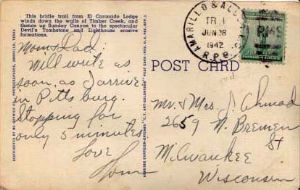 This bridle trail from El Coronado Lodge
winds down the walls of Timber Creek, and
Sunday Canyon to the spectacular
Devil's Tombstone and Lighthouse erosive
formations.
AMARILLO &
TR. 1
JUN 26
1942
R.P.O.
POST CARD
Mom & Dad:
Will write as
soon as I arrive
in Pittsburg.
Stopping for
only 5 minutes
Love
Mr. & Mrs. J. Ahmad
2659 N. Bremen
St
Milwaukee
Wisconsin